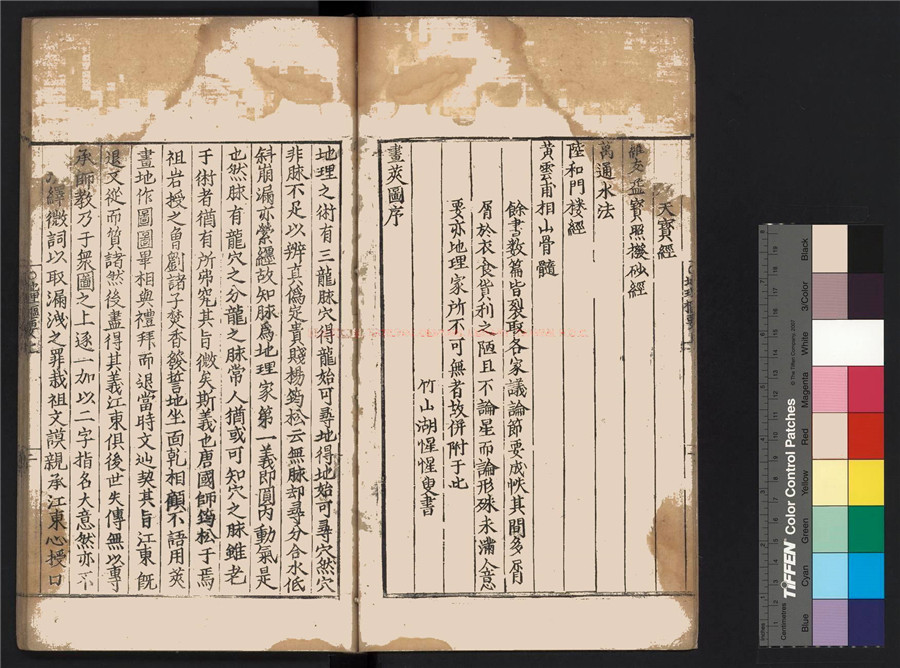 天寶經
寶照撥砂經
萬通水法
陸和門楼經
黃雲甫相山骨髓
餘書数篇皆裂取各家議論節要成帙其間多屑
屑於衣食貨利之陋且不論星而論形殊未滿人意
要亦地理家所不可無者故併附于此
竹山湖惺惺叟書
畫莢圖序
地理之術有三龍脉穴得龍始可尋地得地始可尋穴然穴
非脉不足以辨真偽定貴賤楊筠松云無脉却尋分合水低
斜崩漏亦縈纒故知脉爲地理家第一義即頂内動氣是
也然脉有龍穴之分龍之脉常人猶或可知穴之脉雖老
于術者猶有所弗究其旨微矣斯義也唐國師筠松子焉
祖岩授之曾劉諸子焚香發誓地坐面乾相顧不語用莢
畫地作圖圖畢相與禮拜而退當時文辿契其旨江東旣
退又從而質諸然後盡得其義江東俱後世失傳無以專
承師教乃于衆圖之上逐一加以二字指名大意然亦不
繹微詞以取漏洩之罪哉祖文謨親承江東心授口
Centimetres
Inches
TIFFEN Color Control Patches
© The Tiffen Company, 2007
Blue
Cyan
Green
Yellow
Red
Magenta
White
3/Color
Black